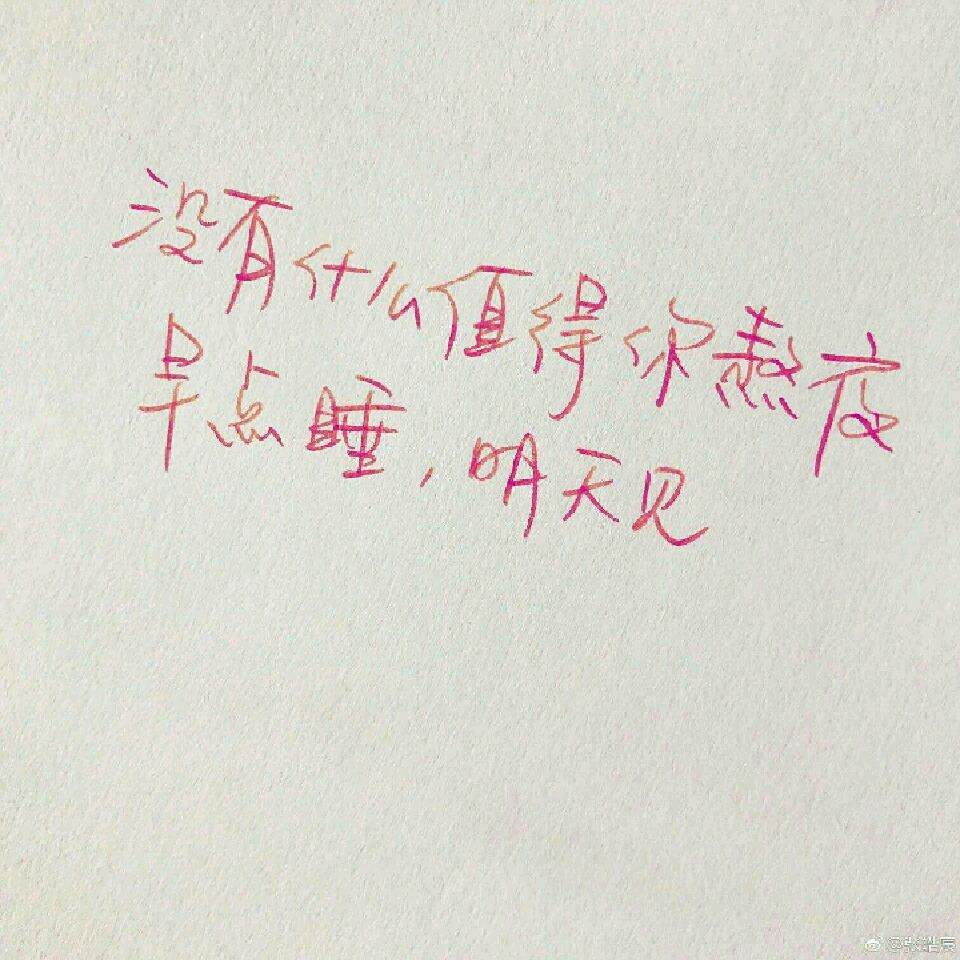 没有什么值得你熬夜
早点睡,明天见
@张皓宸